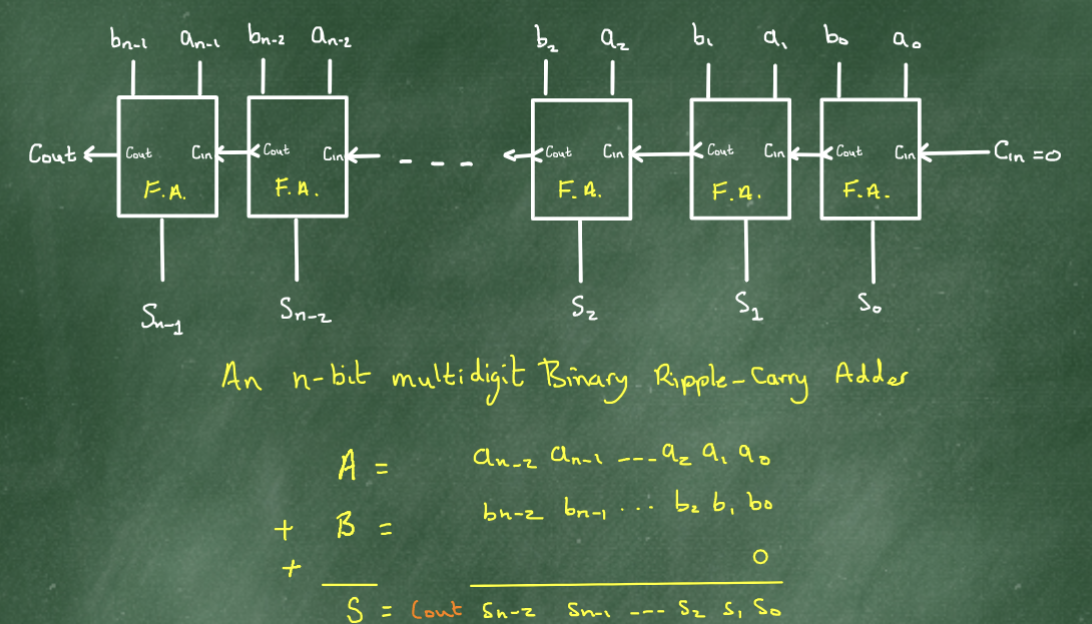 bn-1 an-1 bn-2 an-2 b2 a2 b1 a1 b0 a0
Cout Cout Cin Cout Cin Cout Cin Cout Cin Cout Cin Cin =0
F.A. F.A. F.A. F.A. F.A.
Sn-1 Sn-2 S2 S1 S0
An n-bit multidigit Binary Ripple-Carry Adder
A = an-2 an-1 ---- a2 a1 a0
+ B = bn-2 bn-1 ... b2 b1 b0
+ 0
S = Cout Sn-2 Sn-1 --- S2 S1 S0